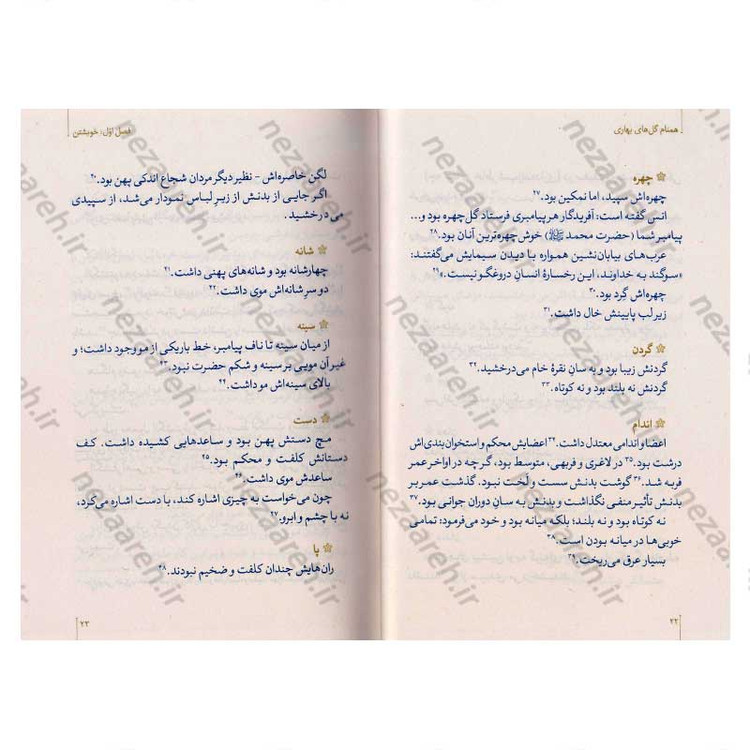 همنام گل‌های بهاری
چهره
چهره‌اش سپید، اما نمکین بود.۲۷
انس گفته است: آفریدگار هر پیامبری فرستاد گل‌چهره بود و...
پیامبر شما (حضرت محمد ﷺ) خوش چهره‌ترین آنان بود.۲۸
عرب‌های بیابان‌نشین همواره با دیدن سیمایش می‌گفتند:
«سوگند به خداوند، این رخسارهٔ انسان دروغگو نیست.»۲۹
چهره‌اش گِرد بود.۳۰
زیر لب پایینش خال داشت.۳۱
گردن
گردنش زیبا بود و به سانِ نقرهٔ خام می‌درخشید.۳۲
گردنش نه بلند بود و نه کوتاه.۳۳
اندام
اعضا و اندامی معتدل داشت.۳۴ اعضایش محکم و استخوان‌بندی‌اش
درشت بود.۳۵ در لاغری و فربهی، متوسط بود، گرچه در اواخر عمر
فربه شد.۳۶ گوشت بدنش سست و لَخت نبود. گذشت عمر بر
بدنش تأثیر منفی نگذاشت و بدنش به سان دوران جوانی بود.۳۷
نه کوتاه بود و نه بلند؛ بلکه میانه بود و خود می‌فرمود: تمامی
خوبی‌ها در میانه بودن است.۳۸
بسیار عرق می‌ریخت.۳۹
۲۲
فصل اوّل: خویشتن
لگن خاصره‌اش - نظیر دیگر مردان شجاع اندکی پهن بود.۴۰
اگر جایی از بدنش از زیر لباس نمودار می‌شد، از سپیدی
می‌درخشید.
شانه
چهارشانه بود و شانه‌های پهنی داشت.۴۱
دو سرِ شانه‌اش موی داشت.۴۲
سینه
از میان سینه تا ناف پیامبر، خط باریکی از مو وجود داشت؛ و
غیر آن مویی بر سینه و شکم حضرت نبود.۴۳
بالای سینه‌اش مو داشت.۴۴
دست
مچ دستش پهن بود و ساعدهایی کشیده داشت. کف
دستانش کلفت و محکم بود.۴۵
ساعدش موی داشت.۴۶
چون می‌خواست به چیزی اشاره کند، با دست اشاره می‌کرد،
نه با چشم و ابرو.۴۷
پا
ران‌هایش چندان کلفت و ضخیم نبودند.۴۸
۲۳
nezaareh.ir